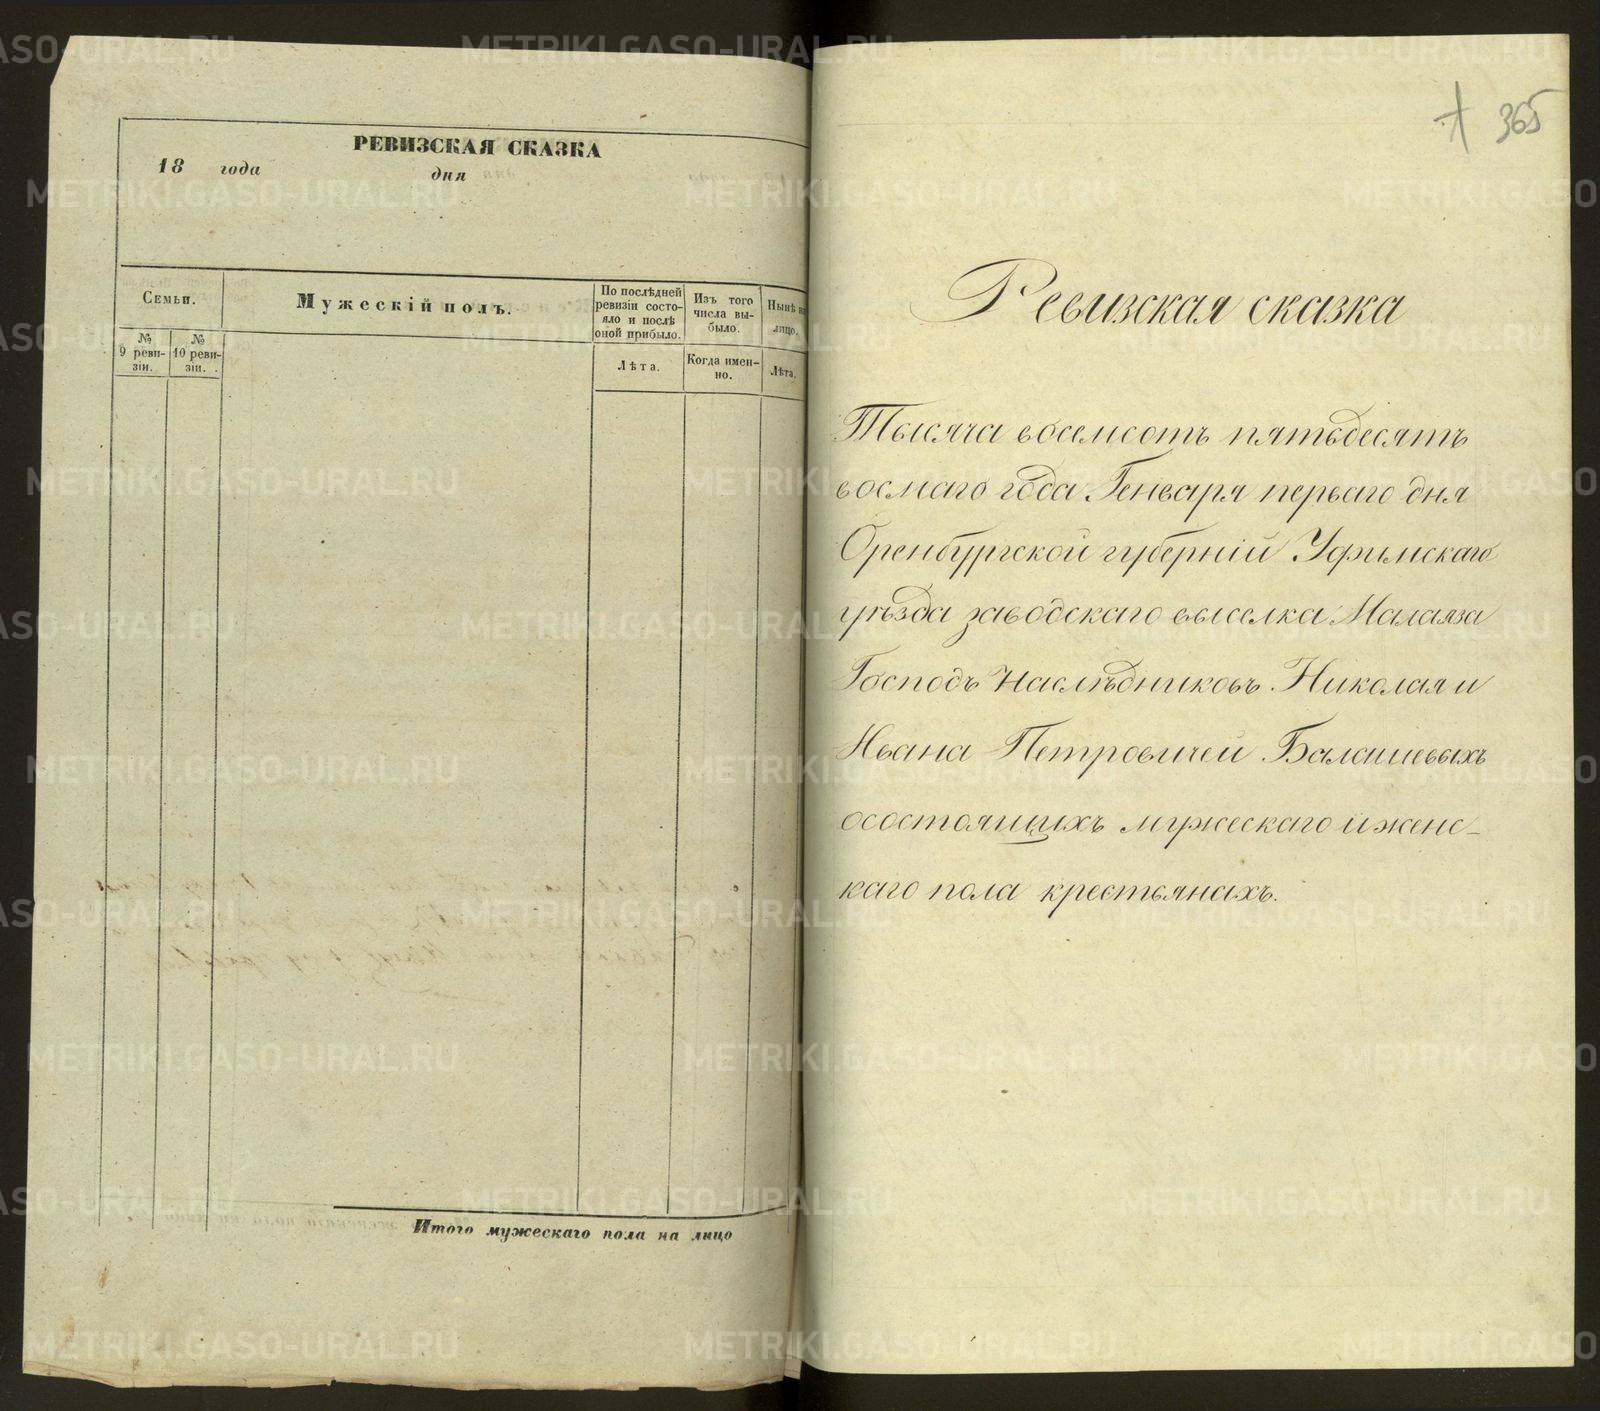 РЕВИЗСКАЯ СКАЗКА
18 года дня
Семьи.
№ 9 реви-
зіи.
№ 10 реви-
зіи.
Мужескій полъ.
По послѣдней
ревизіи состо-
яло и послѣ
оной прибыло.
Лѣта.
Изъ того
числа вы-
было.
Когда имен-
но.
Нынѣ на
лицо.
Лѣта.
Итого мужескаго пола на лицо
365
Ревизская сказка
Тысяча восемсотъ пятьдесятъ
восмаго года Генваря перваго дня
Оренбургской губерніи Уфимскаго
уѣзда заводскаго выселка Малаяза
Господъ Наслѣдниковъ Николая и
Ивана Петровичей Балашевыхъ
осостоящихъ мужескаго и женс-
каго пола крестьянахъ.
METRIKI.GASO-URAL.RU